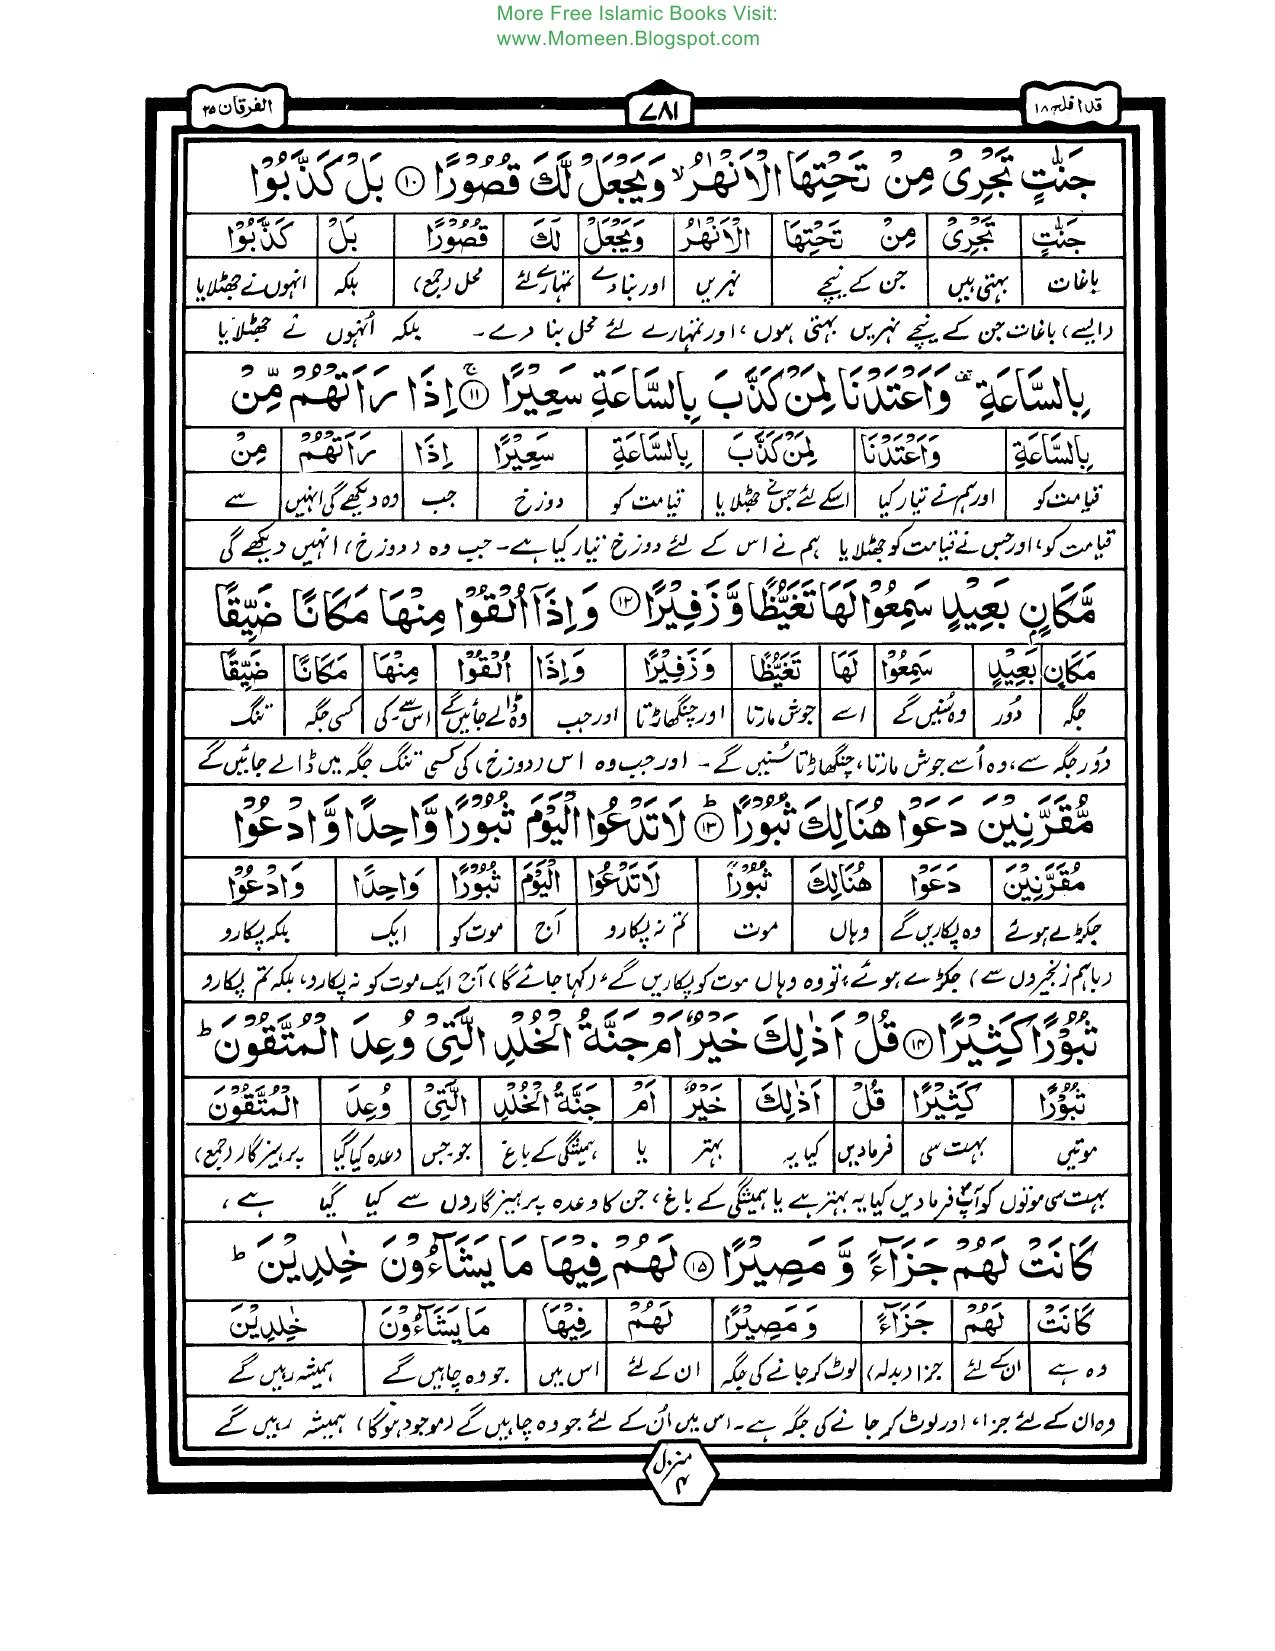 More Free Islamic Books Visit:
www.Momeen.Blogspot.com
قد افلح ۱۸ ۷۸۱ الفرقان ۲۵
جَنّٰتٍ تَجْرِیْ مِنْ تَحْتِهَا الْاَنْهٰرُ ۙ وَیَجْعَلْ لَّكَ قُصُوْرًا ۱۰ بَلْ كَذَّبُوْا
جَنّٰتٍ تَجْرِیْ مِنْ تَحْتِهَا الْاَنْهٰرُ وَیَجْعَلْ لَكَ قُصُوْرًا بَلْ كَذَّبُوْا
باغات بہتی ہیں جن کے نیچے نہریں اور بنا دے تمہارے لئے محل (جمع) بلکہ انہوں نے جھٹلایا
(ایسے) باغات جن کے نیچے نہریں بہتی ہوں، اور تمہارے لئے محل بنا دے۔ بلکہ اُنہوں نے جھٹلایا
بِالسَّاعَةِ وَاَعْتَدْنَا لِمَنْ كَذَّبَ بِالسَّاعَةِ سَعِیْرًا ۱۱ ۚ اِذَا رَاَتْهُمْ مِّنْ
بِالسَّاعَةِ وَاَعْتَدْنَا لِمَنْ كَذَّبَ بِالسَّاعَةِ سَعِیْرًا اِذَا رَاَتْهُمْ مِنْ
قیامت کو اور ہم نے تیار کیا اسکے لئے جس نے جھٹلایا قیامت کو دوزخ جب وہ دیکھے گی انہیں سے
قیامت کو، اور جس نے قیامت کو جھٹلایا ہم نے اس کے لئے دوزخ تیار کیا ہے۔ جب وہ (دوزخ) انہیں دیکھے گی
مَّكَانٍ بَعِیْدٍ سَمِعُوْا لَهَا تَغَیُّظًا وَّزَفِیْرًا ۱۲ وَاِذَاۤ اُلْقُوْا مِنْهَا مَكَانًا ضَیِّقًا
مَكَانٍ بَعِیْدٍ سَمِعُوْا لَهَا تَغَیُّظًا وَزَفِیْرًا وَاِذَا اُلْقُوْا مِنْهَا مَكَانًا ضَیِّقًا
جگہ دُور وہ سُنیں گے اسے جوش مارتا اور چنگھاڑتا اور جب وہ ڈالے جائیں گے اس سے۔کی کسی جگہ تنگ
دُور جگہ سے، وہ اُسے جوش مارتا، چنگھاڑتا سُنیں گے۔ اور جب وہ اس (دوزخ) کی کسی تنگ جگہ میں ڈالے جائیں گے
مُّقَرَّنِیْنَ دَعَوْا هُنَالِكَ ثُبُوْرًا ۱۳ ؕ لَا تَدْعُوا الْیَوْمَ ثُبُوْرًا وَّاحِدًا وَّادْعُوْا
مُقَرَّنِیْنَ دَعَوْا هُنَالِكَ ثُبُوْرًا لَا تَدْعُوا الْیَوْمَ ثُبُوْرًا وَاحِدًا وَادْعُوْا
جکڑے ہوئے وہ پکاریں گے وہاں موت تم نہ پکارو آج موت کو ایک بلکہ پکارو
(باہم زنجیروں سے) جکڑے ہوئے، تو وہ وہاں موت کو پکاریں گے، (کہا جائے گا) آج ایک موت کو نہ پکارو، بلکہ تم پکارو
ثُبُوْرًا كَثِیْرًا ۱۴ قُلْ اَذٰلِكَ خَیْرٌ اَمْ جَنَّةُ الْخُلْدِ الَّتِیْ وُعِدَ الْمُتَّقُوْنَ ؕ
ثُبُوْرًا كَثِیْرًا قُلْ اَذٰلِكَ خَیْرٌ اَمْ جَنَّةُ الْخُلْدِ الَّتِیْ وُعِدَ الْمُتَّقُوْنَ
موتیں بہت سی فرمادیں کیا یہ بہتر یا ہمیشگی کے باغ جو۔جس وعدہ کیا گیا پرہیزگار (جمع)
بہت سی موتوں کو آپؐ فرما دیں کیا یہ بہتر ہے یا ہمیشگی کے باغ، جن کا وعدہ پرہیزگاروں سے کیا گیا ہے،
كَانَتْ لَهُمْ جَزَآءً وَّ مَصِیْرًا ۱۵ لَهُمْ فِیْهَا مَا یَشَآءُوْنَ خٰلِدِیْنَ ؕ
كَانَتْ لَهُمْ جَزَآءً وَ مَصِیْرًا لَهُمْ فِیْهَا مَا یَشَآءُوْنَ خٰلِدِیْنَ
وہ ہے ان کے لئے جزا (بدلہ) لوٹ کر جانے کی جگہ ان کے لئے اس میں جو وہ چاہیں گے ہمیشہ رہیں گے
وہ ان کے لئے جزا، اور لوٹ کر جانے کی جگہ ہے۔ اس میں اُن کے لئے جو وہ چاہیں گے (موجود ہوگا) ہمیشہ رہیں گے
منزل ۴